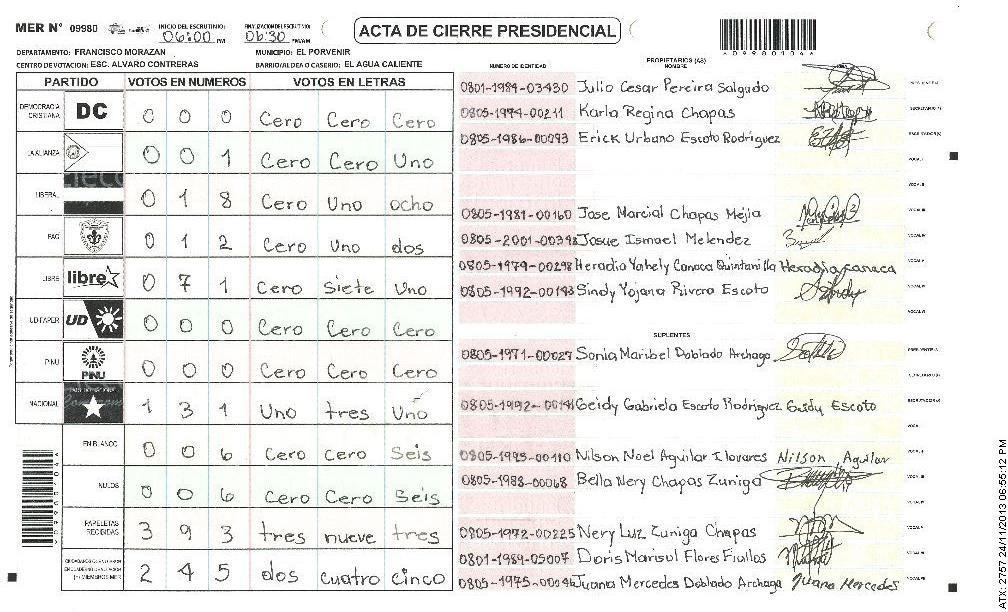 MER N° 09980 INICIO DEL ESCRUTINIO: 06:00 PM FINALIZACION DEL ESCRUTINIO: 06:30 PM/AM
ACTA DE CIERRE PRESIDENCIAL
A09980104A
DEPARTAMENTO: FRANCISCO MORAZAN MUNICIPIO: EL PORVENIR
CENTRO DE VOTACION: ESC. ALVARO CONTRERAS BARRIO/ALDEA O CASERIO: EL AGUA CALIENTE
PARTIDO VOTOS EN NUMEROS VOTOS EN LETRAS
DEMOCRACIA CRISTIANA DC 0 0 0 Cero Cero Cero
LA ALIANZA 0 0 1 Cero Cero Uno
LIBERAL 0 1 8 Cero Uno ocho
PAC 0 1 2 Cero Uno dos
LIBRE libre 0 7 1 Cero Siete Uno
UD FAPER UD 0 0 0 Cero Cero Cero
PINU PINU 0 0 0 Cero Cero Cero
NACIONAL 1 3 1 Uno tres Uno
EN BLANCO 0 0 6 Cero Cero Seis
NULOS 0 0 6 Cero Cero Seis
PAPELETAS RECIBIDAS 3 9 3 tres nueve tres
2 4 5 dos cuatro cinco
PROPIETARIOS (AS)
NUMERO DE IDENTIDAD NOMBRE
0801-1984-03430 Julio Cesar Pereira Salgado
0805-1974-00211 Karla Regina Chapas
0805-1986-00093 Erick Urbano Escoto Rodriguez
0805-1981-00160 Jose Marcial Chapas Mejia
0805-2001-00398 Josue Ismael Melendez
0805-1979-00298 Heradia Yahely Canaca Quintanilla Heradia Canaca
0805-1992-00193 Sindy Yojana Rivera Escoto Sindy
SUPLENTES
0805-1971-00027 Sonia Maribel Doblado Archaga
0805-1992-00141 Geidy Gabriela Escoto Rodriguez Geidy Escoto
0805-1995-00110 Nilson Noel Aguilar Ilovares Nilson Aguilar
0805-1988-00068 Bella Nery Chapas Zuniga
0805-1972-00225 Nery Luz Zuniga Chapas
0801-1989-05007 Doris Marisol Flores Fiallos
0805-1975-00046 Juana Mercedes Doblado Archaga Juana Mercedes
ATX: 2757 24/11/2013 06:55:12 PM